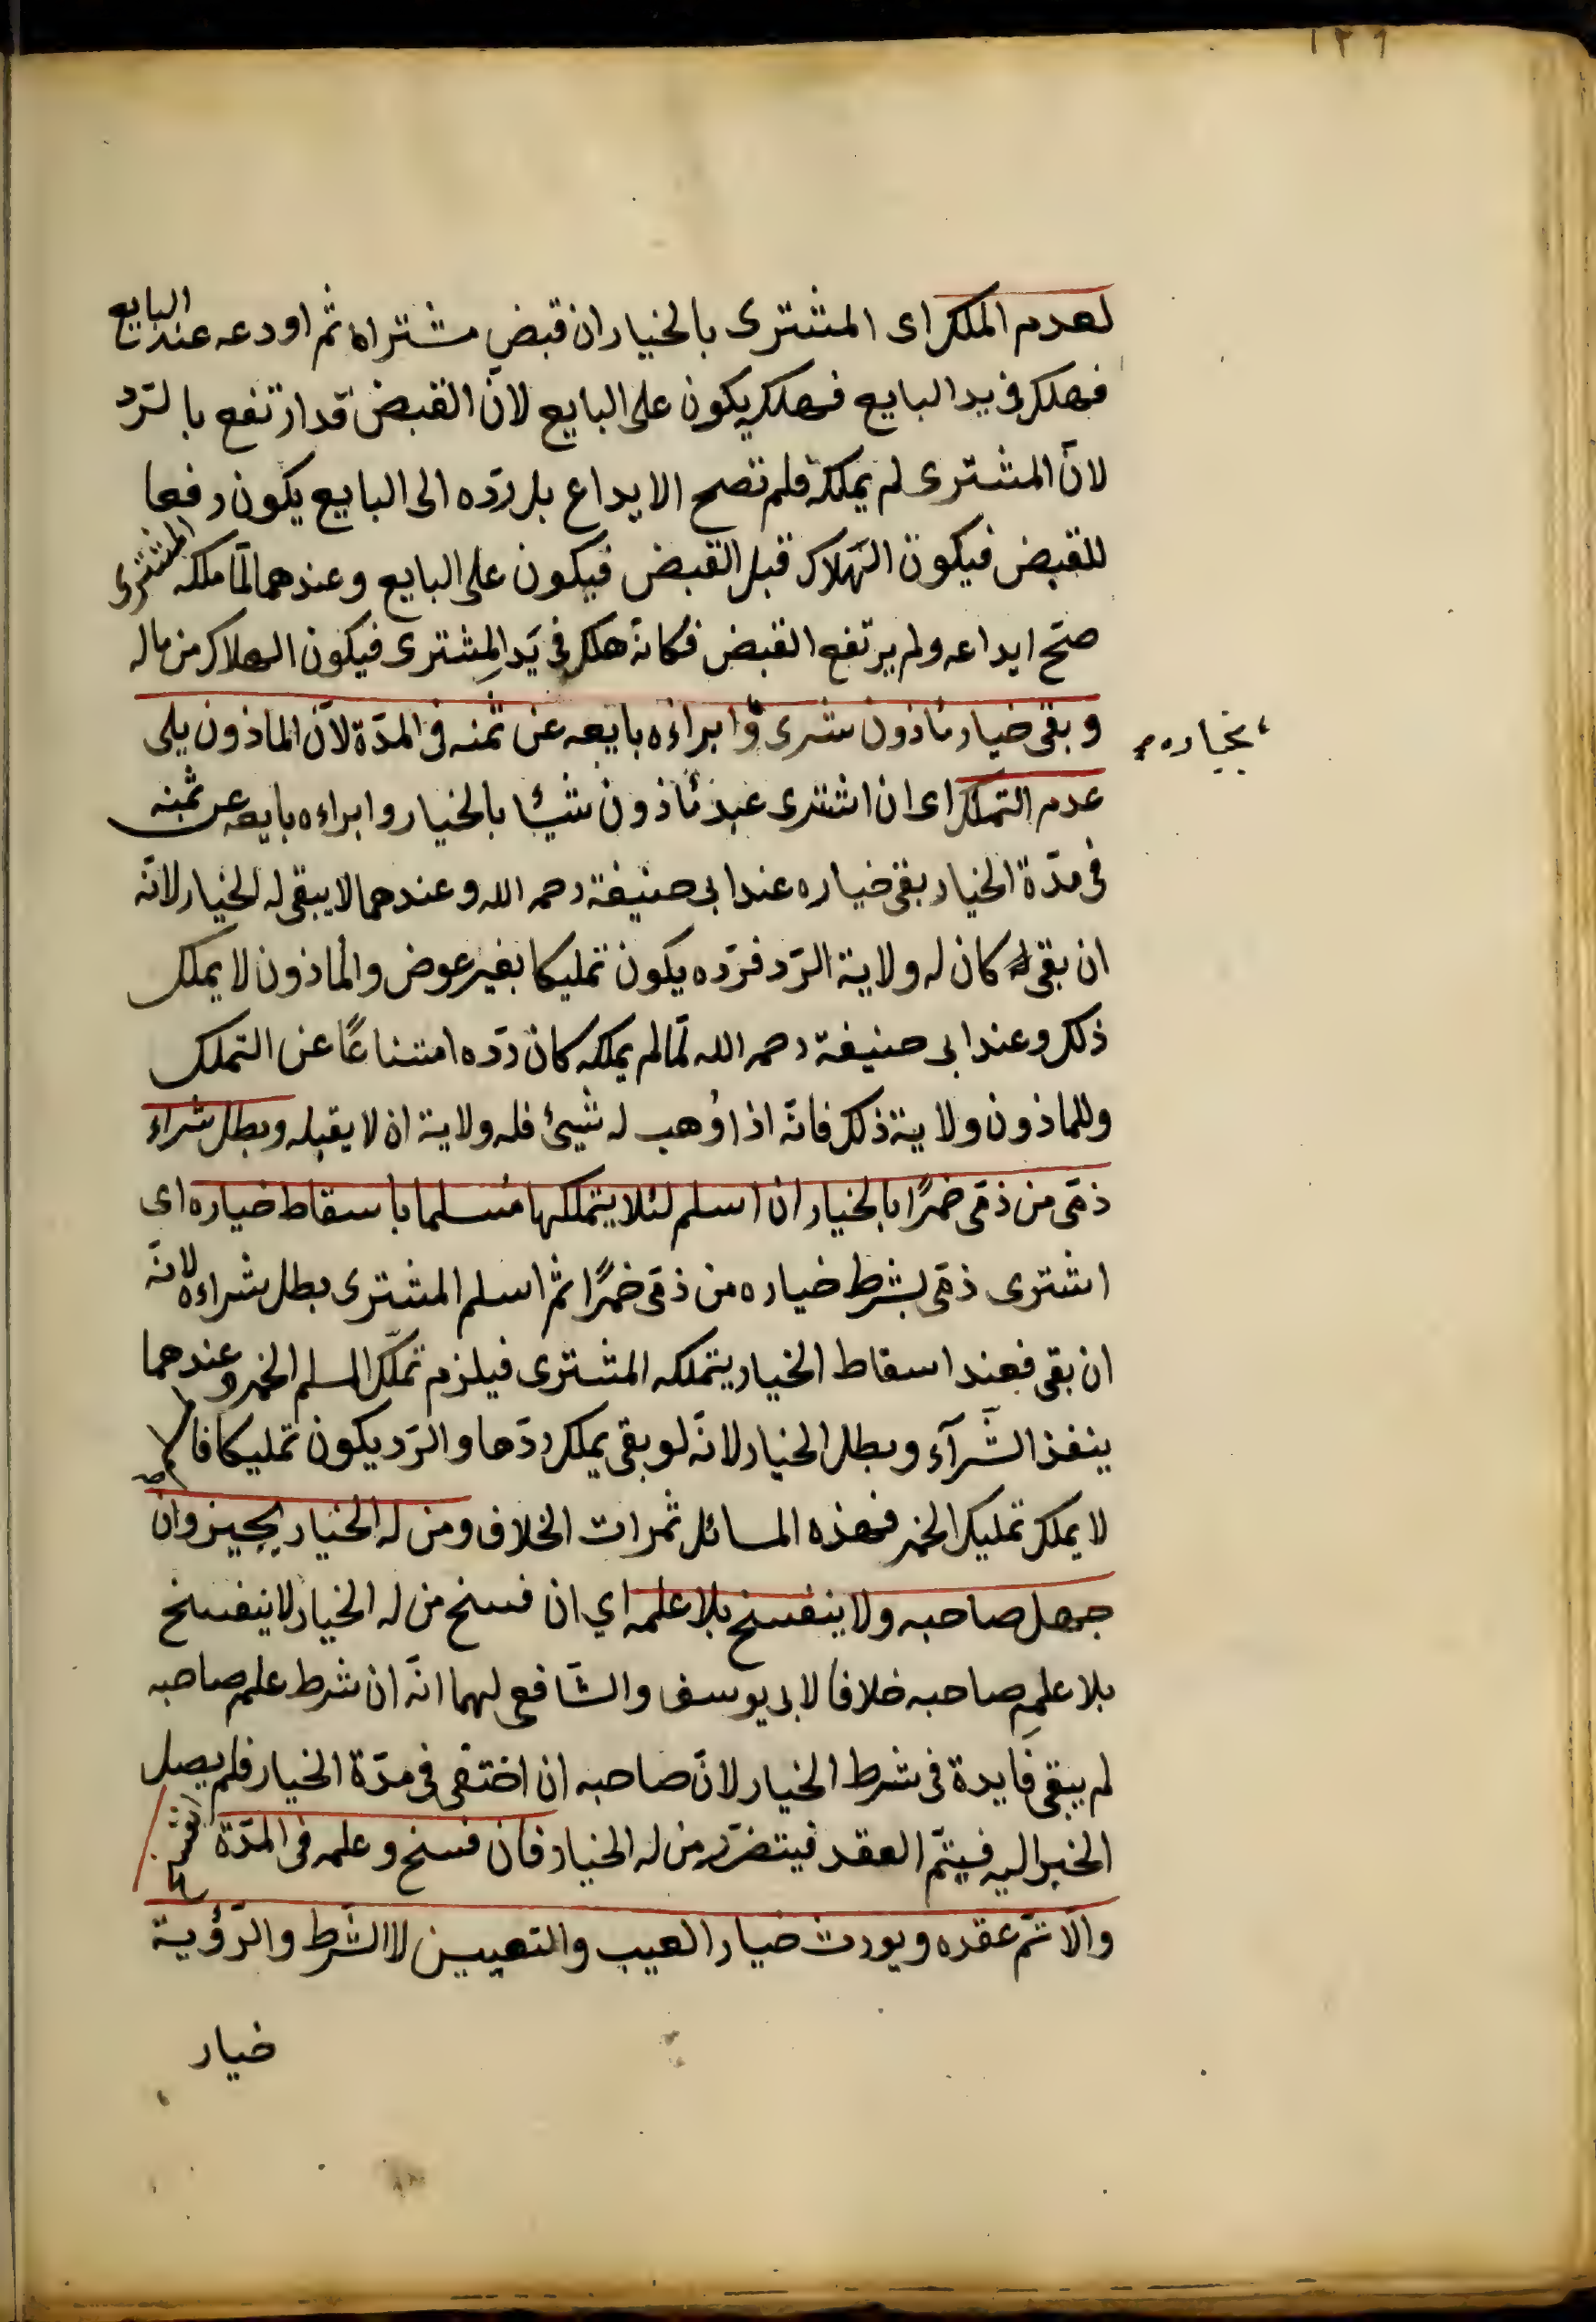 ١٢٩
لعدم الملك اى المشترى بالخيار ان قبض مشتراه ثم اودعه عند البايع
فهلك فى يد البايع فهلكه يكون على البايع لانّ القبض قد ارتفع بالرّد
لانّ المشترى لم يملكه فلم تصح الايداع بل ردّه الى البايع يكون رفعا
للقبض فيكون الهلاك قبل القبض فيكون على البايع وعندهما لمّا ملكه المشترى
صحّ ايداعه ولم يرتفع القبض فكانّه هلك فى يَد المشترى فيكون الهلاك من ماله
وبقى خيار مأذون شرى وابراءه بايعه عن ثمنه فى المدّة لانّ الماذون يلى
بخياره
عدم التملك اى ان اشترى عبد مأذون شيئا بالخيار وابراءه بايعه عن ثمنه
فى مدّة الخيار بقى خياره عند ابى حنيفة رحمه الله وعندهما لا يبقى له الخيار لانّه
ان بقى له كان له ولاية الرّد فردّه يكون تمليكا بغير عوض والمأذون لا يملك
ذلك وعند ابى حنيفة رحمه الله لمّا لم يملكه كان ردّه امتناعًا عن التملك
وللماذون ولاية ذلك فانّه اذا اوُهب له شيئ فله ولاية ان لا يقبله وبطل شراء
ذمّى من ذمّى خمرًا بالخيار ان اسلم لئلا يتملكها مُسلما باسقاط خياره اى
اشترى ذمّى بشرط خياره من ذمّى خمرًا ثم اسلم المشترى بطل شراءه لانّه
ان بقى فعند اسقاط الخيار يتملكه المشترى فيلزم تملّك المسلم الخمر وعندهما
ينفذ الشّرآء وبطل الخيار لانّه لو بقى يملك ردّها والرّد يكون تمليكا فالمسلم
لا يملك تمليك الخمر فهذه المسائل ثمرات الخلاف ومن له الخيار يجيز وان
جهل صاحبه ولا ينفسخ بلا علمه اي ان فسخ من له الخيار لا ينفسخ
بلا علمِ صاحبه خلافا لابى يوسف والشّافعى لهما انّه ان شرط علم صاحبه
لم يبقى فايدة فى شرط الخيار لانّ صاحبه ان اختفى فى مدّة الخيار فلم يصل
الخبر اليه فيتمّ العقد فيتضرّر من له الخيار فان فسخ وعلمه فى المدّة انفسخ
والّا تمّ عقده ويورث خيار العيب والتعيين لا الشّرط والرّؤية
خيار